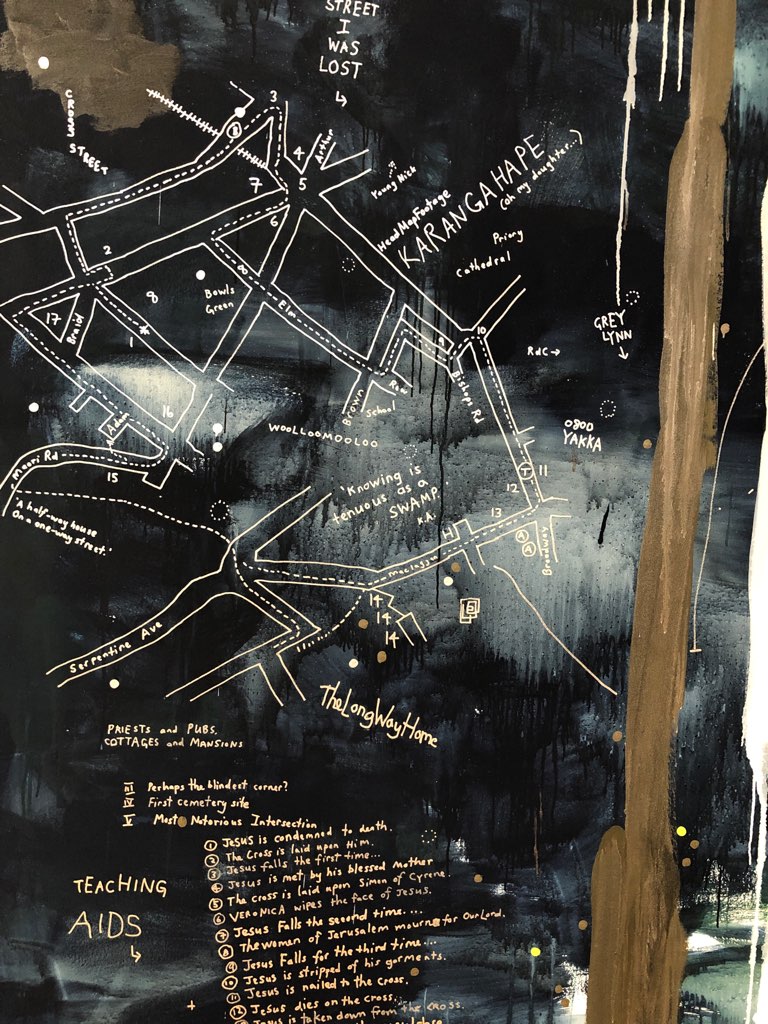 STREET
I
WAS
LOST
CROSS STREET
3
8
4
Arthur
7
5
Young Nick
HeadMapFootage
KARANGAHAPE
(oh my daughter...)
6
Priory
Cathedral
2
8
8
Bowls
Green
Elm
17
Braid
1
GREY
LYNN
9
10
RdC →
Row
Bishops Rd
Brown
School
16
Adam
WOOLLOOMOOLOO
0800
YAKKA
Maori Rd
15
'Knowing is
tenuous as a
SWAMP.'
K.A.
T
11
12
13
'A half-way house
On a one-way street.'
H
Broadway
Maclagg
14
14
14
11
Serpentine Ave
TheLongWayHome
PRIESTS and PUBS,
COTTAGES and MANSIONS
III Perhaps the blindest corner?
IV First cemetery site
V Most Notorious Intersection
1 Jesus is condemned to death.
2 The Cross is laid upon Him.
3 Jesus falls the first time...
4 Jesus is met by his blessed Mother
5 The cross is laid upon Simon of Cyrene.
6 VERONICA wipes the face of Jesus.
7 Jesus Falls the second time....
8 The women of Jerusalem mourn for Our Lord.
9 Jesus Falls for the third time...
10 Jesus is stripped of his garments.
11 Jesus is nailed to the cross.
12 Jesus dies on the cross..
Jesus is taken down from the cross.
TEACHING
AIDS